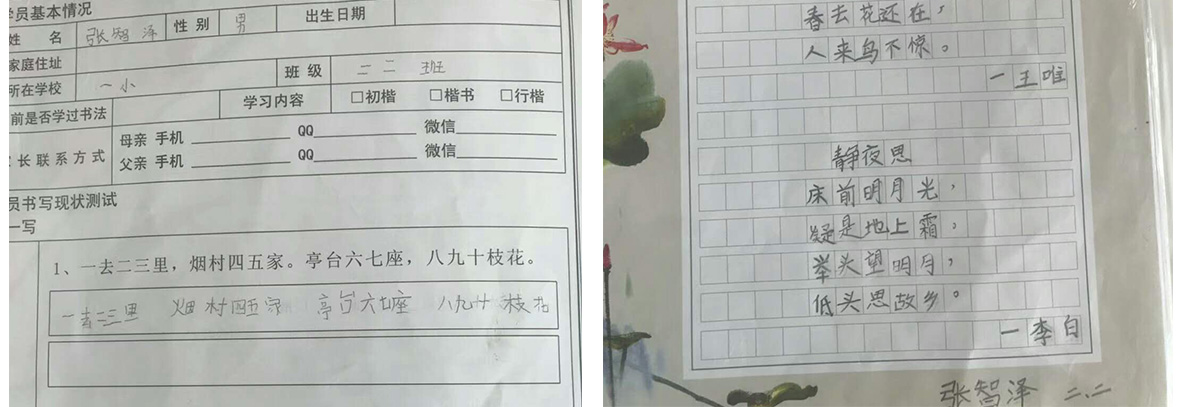 学员基本情况
姓 名 张智泽 性别 男 出生日期
家庭住址
所在学校 一小 班级 二二 班
前是否学过书法 学习内容 □初楷 □楷书 □行楷
长联系方式 母亲 手机 QQ 微信
父亲 手机 QQ 微信
员书写现状测试
一写
1、一去二三里，烟村四五家。亭台六七座，八九十枝花。
一去二三里 烟村四五家 亭台六七座 八九十枝花
春去花还在，
人来鸟不惊。
一王唯
静夜思
床前明月光，
疑是地上霜，
举头望明月，
低头思故乡。
一李白
张智泽 二.二